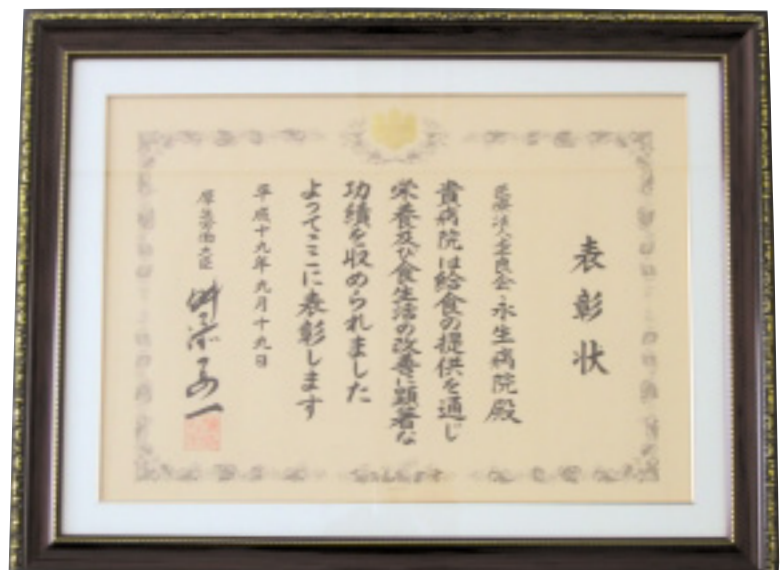 表彰状
永生病院殿
貴病院は給食の提供を通じ
栄養及び食生活の改善に顕著な
功績を収められました
よってここに表彰します
平成十九年九月十九日
厚生労働大臣